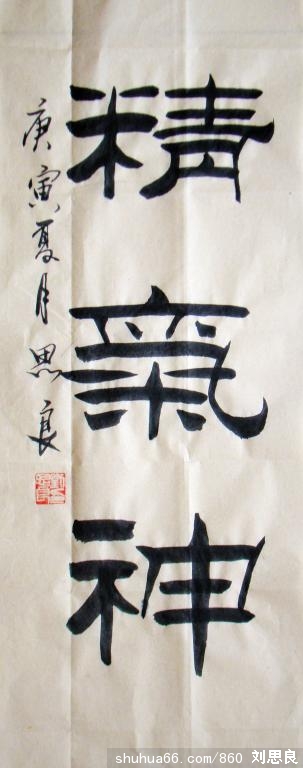 精氣神
庚寅夏月思良
劉思良印
shuhua66.com/860 刘思良